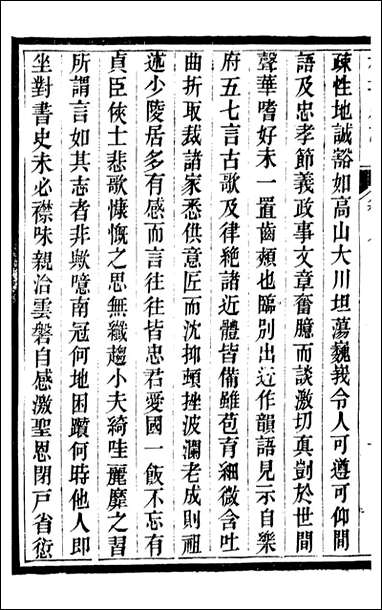 疎性地誠豁如高山大川坦蕩巍峩令人可遵可仰間
語及忠孝節義政事文章奮臆而談激切真剴於世間
聲華嗜好未一置齒頰也臨別出近作韻語見示自樂
府五七言古歌及律絶諸近體皆備雖苞育細微含吐
曲折取裁諸家悉供意匠而沈抑頓挫波瀾老成則祖
述少陵居多有感而言往往皆忠君愛國一飯不忘有
貞臣俠士悲歌慷慨之思無纖趨小夫綺哇麗靡之習
所謂言如其志者非歟噫南冠何地困躓何時他人即
坐對書史未必襟味親洽雲磐自感激聖恩閉戸省愆